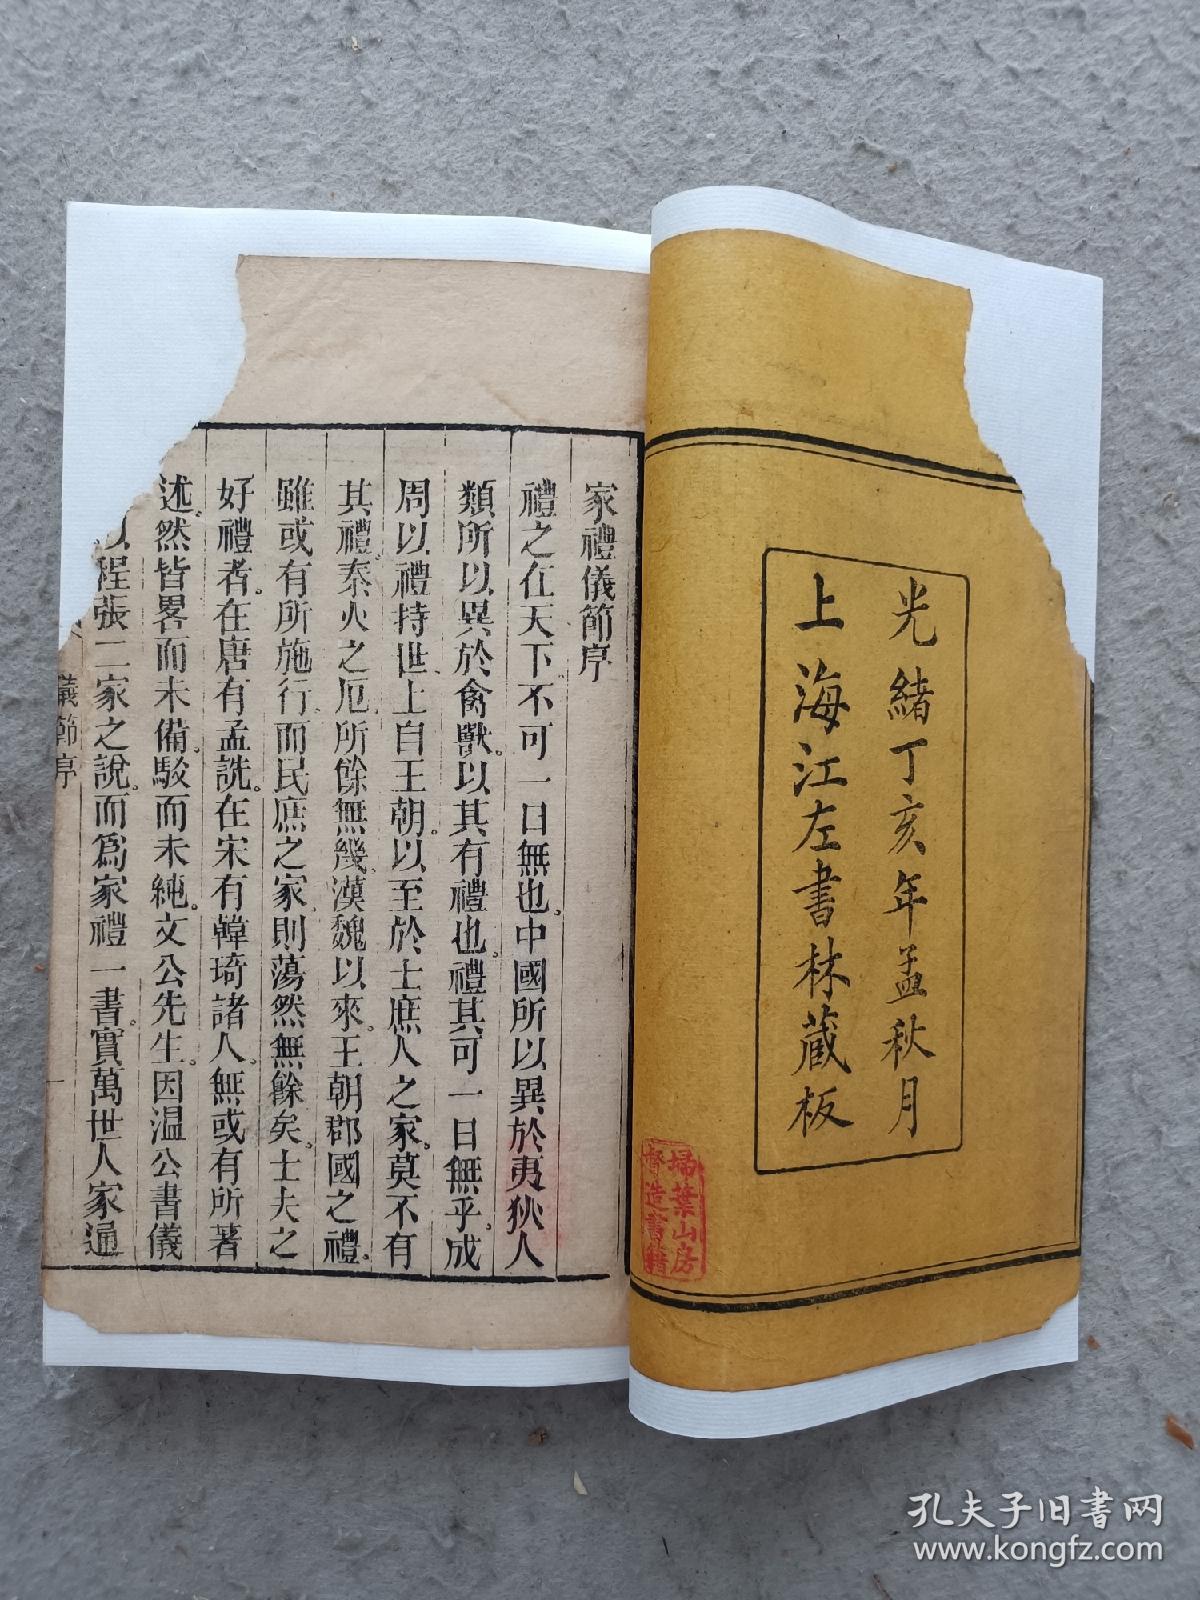 光緒丁亥年孟秋月
上海江左書林蔵板
掃葉山房
督造書籍
家禮儀節序
禮之在天下不可一日無也中國所以異於夷狄人
類所以異於禽獸以其有禮也禮其可一日無乎成
周以禮持世上自王朝以至於士庶人之家莫不有
其禮秦火之厄所餘無幾漢魏以來王朝郡國之禮
雖或有所施行而民庶之家則蕩然無餘矣士夫之
好禮者在唐有孟詵在宋有韓琦諸人無或有所著
述然皆畧而未備駁而未純文公先生因温公書儀
以程張二家之說而爲家禮一書實萬世人家通
儀節序
一
孔夫子旧書网
www.kongfz.com